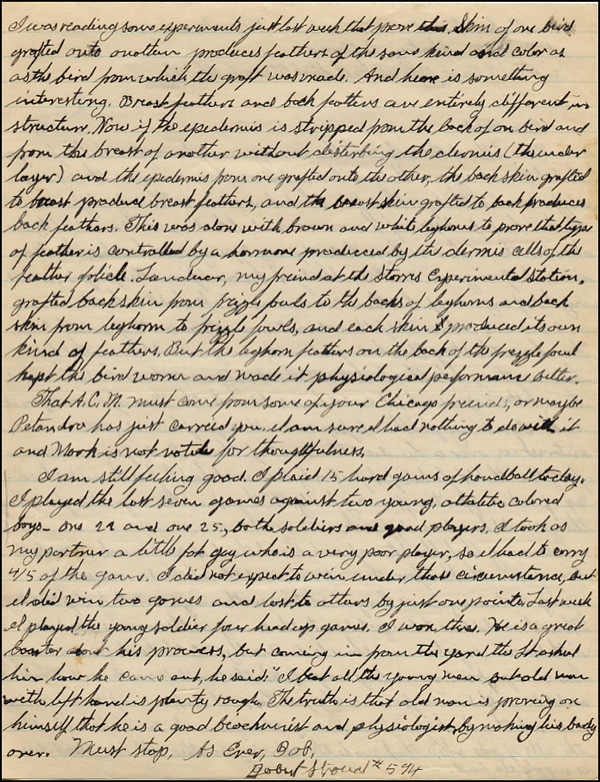 I was reading some experiments just last week that prove this. Skin of one bird
grafted onto another produces feathers of the same kind and color as
as the bird from which the graft was made. And here is something
interesting. Breast feathers and back feathers are entirely different in
structure. Now if the epidermis is stripped from the back of on bird and
from the breast of another without disterbing the dermis (the under
layer) and the epidermis from one grafted onto the other, the back skin grafted
to breast produce breast feathers, and the breast skin grafted to back produces
back feathers. This was done with brown and white leghorns to prove that type
of feather is controlled by a hormone produced by the dermis cells of the
feather folicle. Landauer, my freind at the Storrs Experimental Station,
grafted back skin from frizzle fowls to the backs of leghorns and back
skin from leghorn to frizzle fowls, and each skin produced its own
kind of feathers. But the leghorn feathers on the back of the frezzle fowl
kept the bird warm and made it physiological performance better.
That A.C.M. must come from some of your Chicago freinds, or maybe
has just carreid you. I am sure I had nothing to do with it
and is not noted for thoughtfulness.
I am still feeling good. I plaid 15 hard games of handball today.
I played the last seven games against two young, athletic colored
boys - one 21 and one 25, both soldiers and good players. I took as
my partner a little fat guy who is a very poor player, so I had to carry
4/5 of the game. I did not expect to win under those circumstances, but
I did win two games and lost to others by just one point. Last week
I played the young soldier four head up games. I won three. He is a great
boaster about his prowess, but coming in from the yard the Lt asked
him how he came out, he said: "I beat all the young men but old man
with left hand is plenty rough. The truth is that old man is proving on
himself that he is a good biochemist and physiologist by making his body
over. Must stop, As Ever, Bob,
Robert Stroud #594